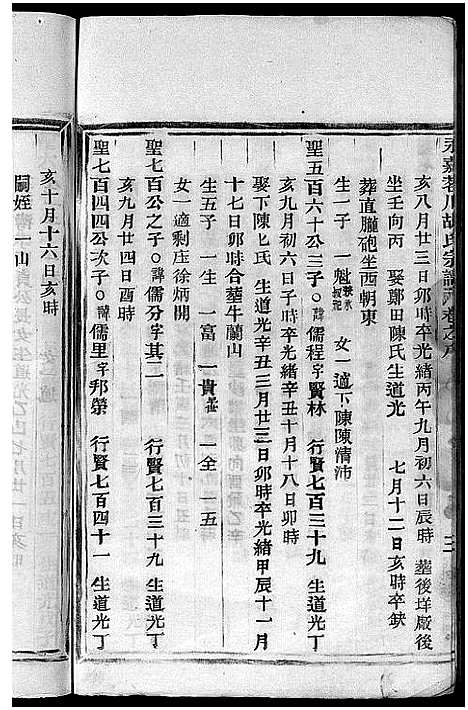 永嘉蓉川胡氏宗譜 卷之
亥八月廿三日卯時卒光緒丙午九月初六日辰時 塟後垟厰後
坐壬向丙 娶鄭田陳氏生道光 七月十二日亥時卒缺
葬直朧砲坐西朝東
生一子 一魁 女一適下陳陳清沛
聖五百六十公三子○諱儒程字賢林 行賢七百三十九 生道光丁
亥九月初六日子時卒光緒辛丑十月十八日卯時
娶下陳匕氏 生道光辛丑三月廿三日卯時卒光緒甲辰十一月
十七日卯時合塟牛蘭山
生五子 一生 一富 一貴 一全 一五
女一適剩庄徐炳開
聖七百公之子○諱儒分字其二 行賢七百三十九 生道光丁
亥九月廿四日酉時
聖七百四四公次子○諱儒里字邦榮 行賢七百四十一 生道光丁
亥十月十六日亥時
嗣姪 一山